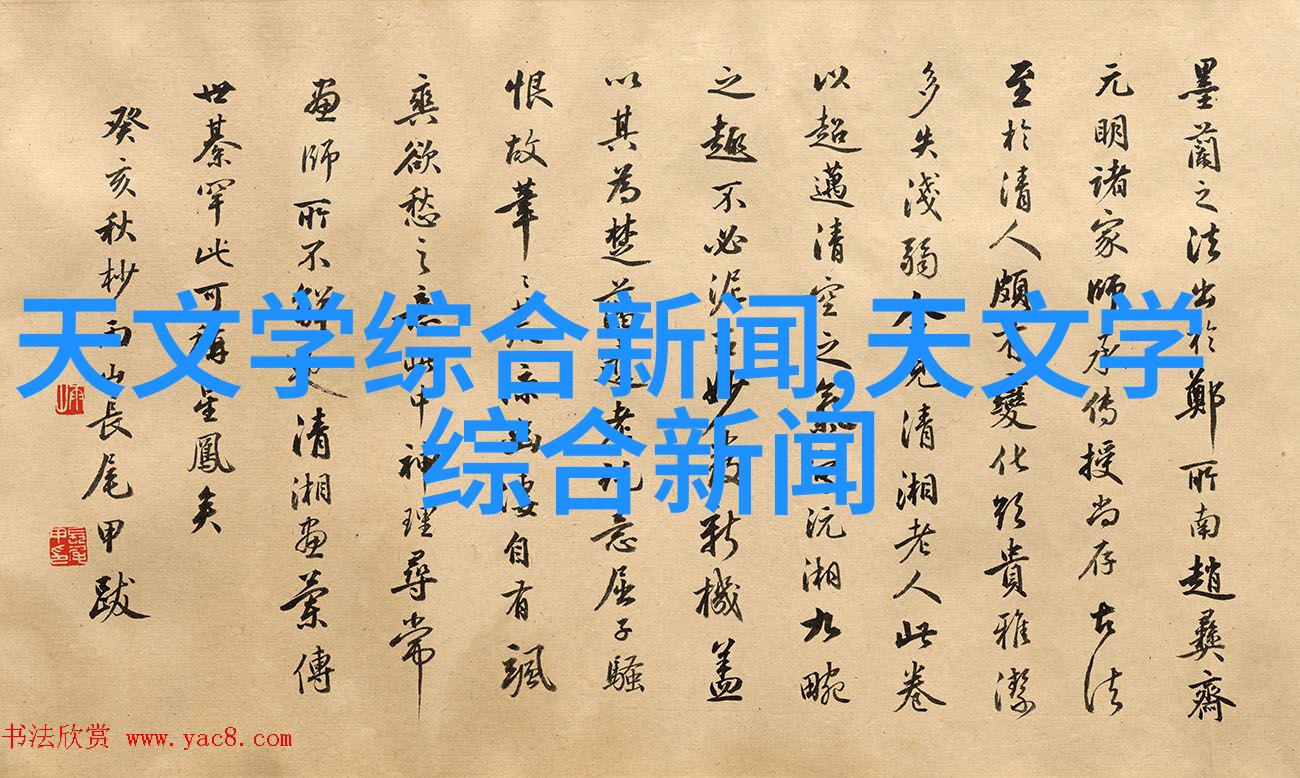 天文学综合新闻,天文学
综合新闻
墨蘭之法出於鄭所南趙彝齋
元明諸家師承傳授尚存古法
至於清人頗變化貴雅潔
多失淺弱見清湘老人此卷
以超邁清空之氣沅湘九畹
之趣不必泥古妙發新機蓋
以其為楚老意屈子騷
恨故筆幽凄自有颯
爽欲愁之意此中神理尋常
畫師所不解也清湘畫蘭傳
世綦罕此可稱星鳳矣
癸亥秋杪雨山長尾甲跋
书法欣赏 www.yac8.com